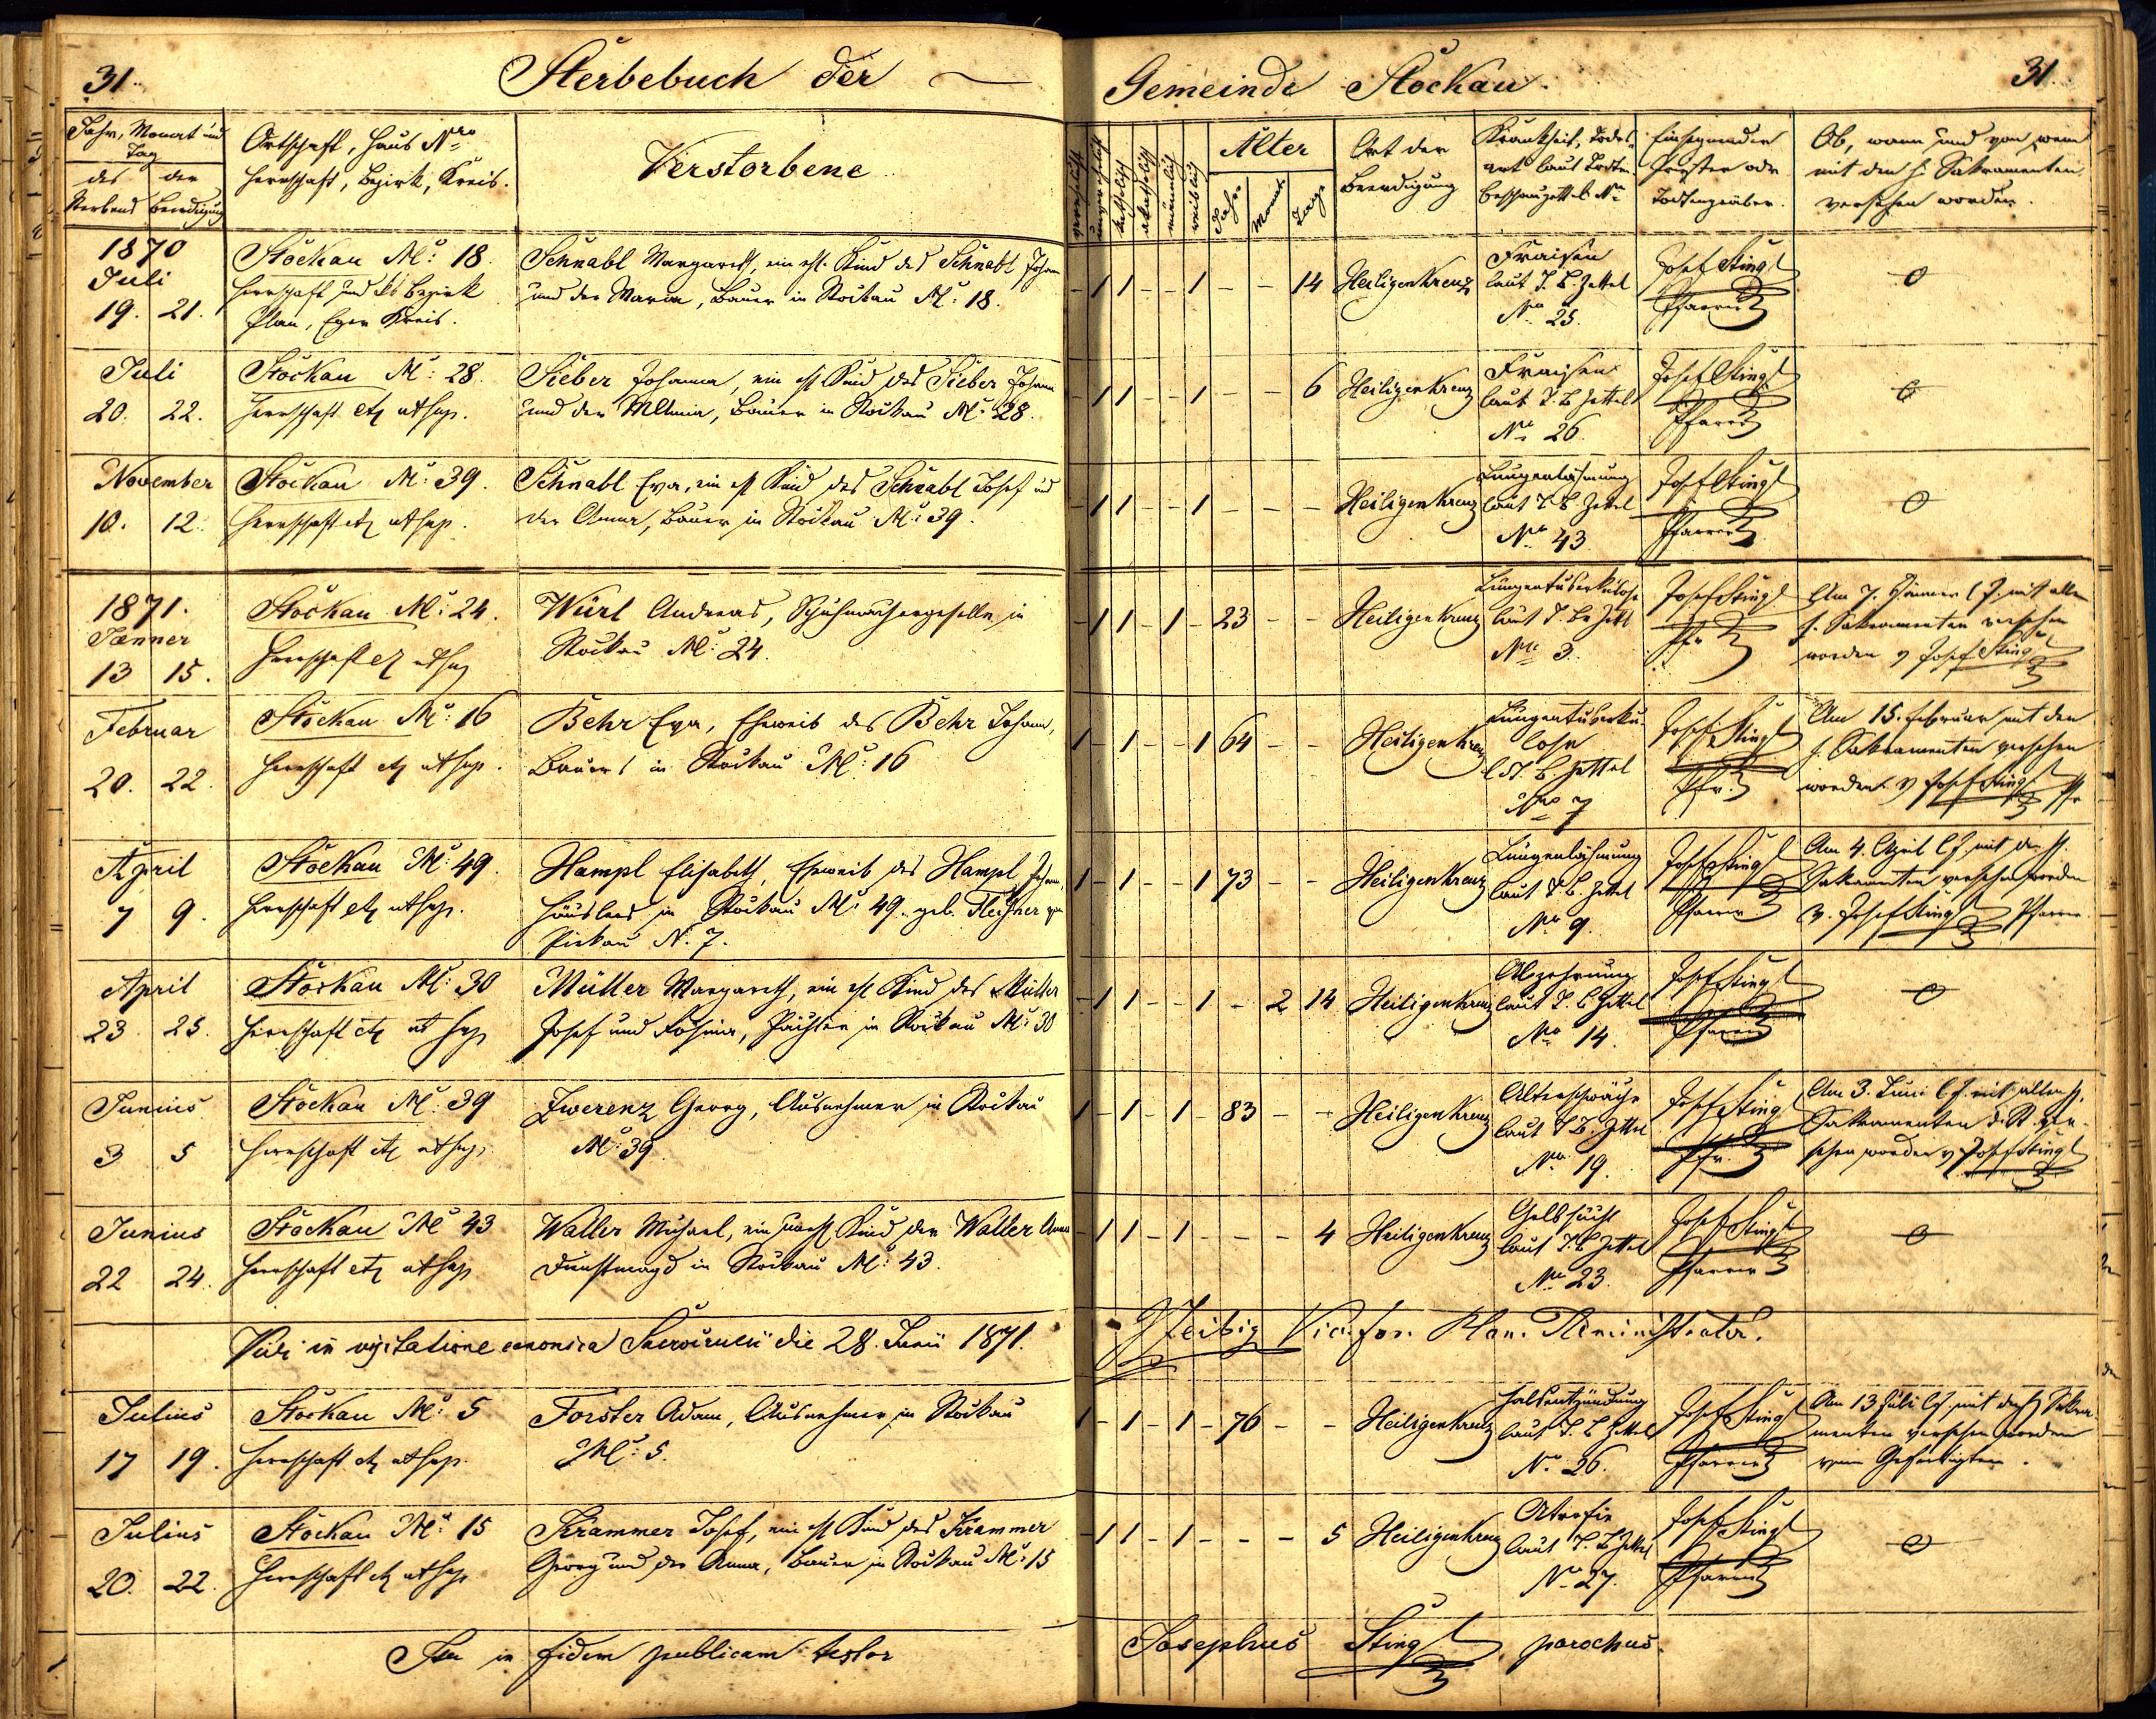 31.
Sterbebuch der
Gemeinde Stockau.
31.
Jahr, Monat und
Tag
des der
Sterbens Beerdigung
Ortschaft, Haus Nro
Herrschaft, Bezirk, Kreis.
Verstorbene
verehelicht
unverehelicht
katholisch
akatholisch
männlich
weiblich
Alter
Jahre
Monat
Tage
Ort der
Beerdigung
Krankheit, Todes-
art laut Todten
beschauzettels Nro
Einsegnender
Priester oder
Todtengräber.
Ob, wann und von wem
mit den h. Sakramenten
versehen worden.
1870
Juli
19. 21.
Stockau N: 18.
Herrschaft und Bezirk
Plan, Eger Kreis.
Schnabl Margareth, ein ehl. Kind des Schnabl Johann
und der Maria, Bauer in Stockau N: 18.
- 1 1 - - 1 - - 14
Heiligenkreuz
Fraisen
laut T. B. Zettel
No 25.
Josef Stingl
Pfarrer
0
Juli
20. 22.
Stockau N: 28.
Herrschaft etz ut sup.
Sieber Johanna, ein ehl Kind des Sieber Johann
und der Anna, Bauer in Stockau N: 28.
- 1 1 - - 1 - - 6
Heiligenkreuz
Fraisen
laut T. B Zettel
No 26.
Josef Stingl
Pfarrer
0
November
10. 12.
Stockau N: 39.
Herrschaft etz ut sup.
Schnabl Eva, ein ehl Kind des Schnabl Josef und
der Anna, Bauer in Stockau N: 39.
- 1 1 - - 1 - - -
Heiligenkreuz
Lungenlähmung
laut T. B. Zettel
No 43
Josef Stingl
Pfarrer
0
1871.
Jänner
13 15.
Stockau N: 24.
Herrschaft etz ut sup
Würl Andreas, Schuhmachergeselle in
Stockau N: 24.
- 1 1 - 1 - 23 - -
Heiligenkreuz
Lungentuberkulose
laut T. B. Zettl
No 3.
Josef Stingl
Pfr
Am 7. Jänner l. J. mit allen
h. Sakramenten versehen
worden v Josef Stingl
Februar
20. 22.
Stockau N: 16
Herrschaft etz ut sup.
Behr Eva, Eheweib des Behr Johann,
Bauers in Stockau N: 16
1 - 1 - - 1 64 - -
Heiligenkreuz
Lungentuberku-
lose
l T. B. Zettel
No 7
Josef Stingl
Pfr.
Am 15. Februar mit den
h. Sakramenten versehen
worden v Josef Stingl Pfr
April
7 9.
Stockau N: 49.
Herrschaft etz ut sup.
Hampl Elisabeth, Eheweib des Hampl Johann,
Häuslers in Stockau N: 49. geb.
N. 7.
1 - 1 - - 1 73 - -
Heiligenkreuz
Lungenlähmung
laut T. B. Zettel
No 9.
Josef Stingl
Pfarrer
Am 4. April l J. mit den h.
Sakramenten versehen worden
v. Josef Stingl Pfarrer.
April
23. 25.
Stockau N: 30
Herrschaft etz ut sup
Müller Margareth, ein ehl Kind des Müller
Josef und Rosina, Pächter in Stockau N: 30
- 1 1 - - 1 - 2 14
Heiligenkreuz
Abzehrung
laut T. B Zettel
No 14.
Josef Stingl
Pfarrer
0
Junius
3 5
Stockau N: 39
Herrschaft etz ut sup.
Zwerenz Georg, Ausnehmer in Stockau
N: 39
1 - 1 - 1 - 83 - -
Heiligenkreuz
Altersschwäche
laut T. B. Zettel
No 19.
Josef Stingl
Pfr.
Am 3. Juni l J. mit allen h.
Sakramenten d. St. ver-
sehen worden v Josef Stingl
Junius
22 24.
Stockau N 43
Herrschaft etz ut sup
Waller Michael, ein unehl Kind der Waller Anna
Dienstmagd in Stockau N: 43.
- 1 1 - 1 - - - 4
Heiligenkreuz
Gelbsucht
laut T. B Zettel
No 23.
Josef Stingl
Pfarrer
0
Vidi in visitatione canonica die 28. Junii 1871.
Vic. for.
Julius
17 19.
Stockau N: 5
Herrschaft etz ut sup.
Forster Adam, Ausnehmer in Stockau
N: 5.
1 - 1 - 1 - 76 - -
Heiligenkreuz
Halsentzündung
laut T. B Zettel
No 26.
Josef Stingl
Pfarrer
Am 13 Juli l J. mit den h Sakra-
menten versehen worden
vom Gefertigten.
Julius
20. 22.
Stockau N: 15
Herrschaft etz ut sup
Krammer Josef, ein ehl Kind des Krammer
Georg und der Anna, Bauer in Stockau N: 15
- 1 1 - 1 - - - 5
Heiligenkreuz
Atrofie
laut T. B Zettel
No 27.
Josef Stingl
Pfarrer
0
in fidem publicam testor
Josephus Stingl parochus.